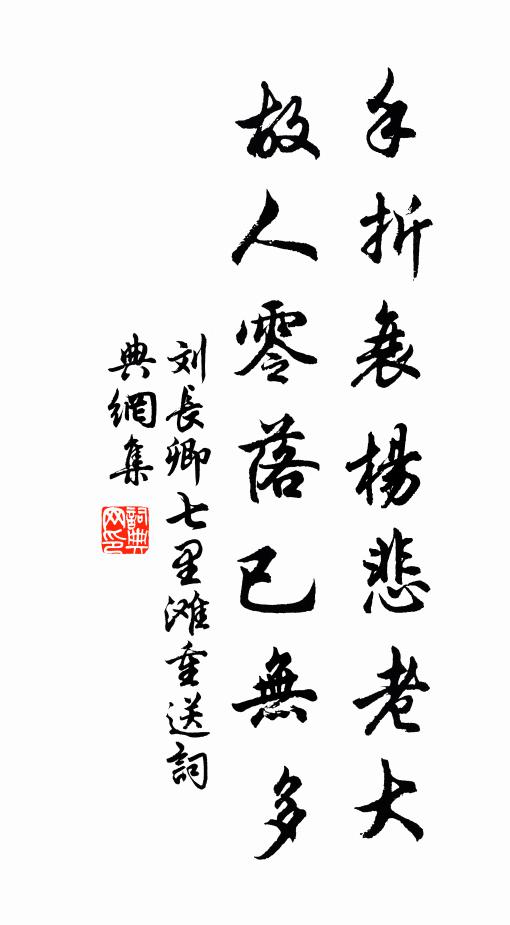 手折衰楊悲老大
故人零落已無多
刘長卿七里滩重送詞
典網集
詞典
网印